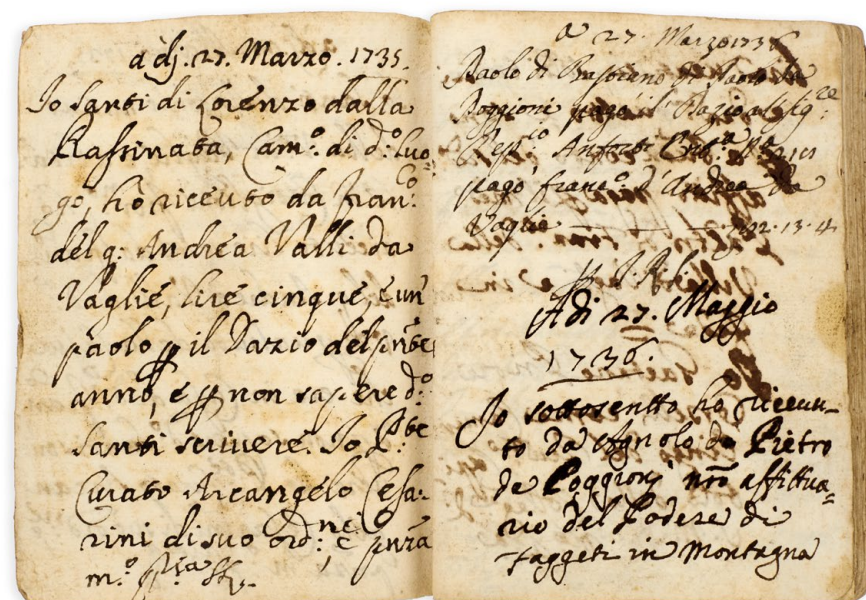 a dj. 27. Marzo. 1735.
Io Santi di Lorenzo dalla
Rassinata, Cam.º di d.º luo
go, hò riceuto da Fran.co
del q: Andrea Valli da
Vaglie, lire cinque, e un
paolo p il Dazio del pnte
anno, e p non sapere d.º
Santi scrivere. Io P.te
Curato Arcangelo Cesa:
rini di suo ord:ne, e pnza
m.º
a 27. Marzo 1736
Paolo di
Poggioni paga il Dazio al Sig.re
pagò Franc.º d'Andrea da
Vaglie 12.13.4
Adi 27. Maggio
1736.
Io sottoscritto ho riceuu-
to da Agnolo di Pietro
da Poggioni nrõ affittua=
rio del Podere di
Faggeti in Montagna